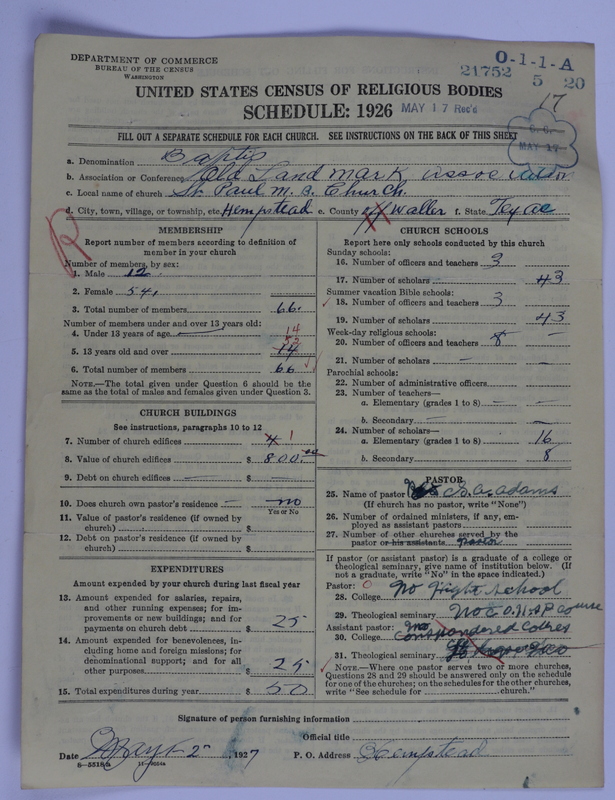 DEPARTMENT OF COMMERCE
BUREAU OF THE CENSUS
WASHINGTON
O-1-1-A
21752 5 20
UNITED STATES CENSUS OF RELIGIOUS BODIES
SCHEDULE: 1926
MAY 17 Rec'd
17
MAY 17
FILL OUT A SEPARATE SCHEDULE FOR EACH CHURCH. SEE INSTRUCTIONS ON THE BACK OF THIS SHEET
a. Denomination Baptis
b. Association or Conference Old Land mark association
c. Local name of church St. Paul M. B. Church.
d. City, town, village, or township, etc. Hempstead e. County Waller f. State Texas
R
MEMBERSHIP
Report number of members according to definition of
member in your church
Number of members, by sex:
1. Male 12
2. Female 54
3. Total number of members 66.
Number of members under and over 13 years old:
4. Under 13 years of age — 14
5. 13 years old and over 52 14
6. Total number of members 66
NOTE.—The total given under Question 6 should be the
same as the total of males and females given under Question 3.
CHURCH BUILDINGS
See instructions, paragraphs 10 to 12
7. Number of church edifices 4 1
8. Value of church edifices $ 800.00
9. Debt on church edifices — $ —
10. Does church own pastor's residence? — no
Yes or No
11. Value of pastor's residence (if owned by
church) $
12. Debt on pastor's residence (if owned by
church) $
EXPENDITURES
Amount expended by your church during last fiscal year
13. Amount expended for salaries, repairs,
and other running expenses; for im-
provements or new buildings; and for
payments on church debt $ 25
14. Amount expended for benevolences, in-
cluding home and foreign missions; for
denominational support; and for all
other purposes $ 25
15. Total expenditures during year $ 50
CHURCH SCHOOLS
Report here only schools conducted by this church
Sunday schools:
16. Number of officers and teachers 3
17. Number of scholars 43
Summer vacation Bible schools:
18. Number of officers and teachers 3
19. Number of scholars 43
Week-day religious schools:
20. Number of officers and teachers 8 —
21. Number of scholars — —
Parochial schools:
22. Number of administrative officers
23. Number of teachers—
a. Elementary (grades 1 to 8) — —
b. Secondary — —
24. Number of scholars—
a. Elementary (grades 1 to 8) 16
b. Secondary 8
PASTOR
25. Name of pastor adams
(If church has no pastor, write "None")
26. Number of ordained ministers, if any, em-
ployed as assistant pastors
27. Number of other churches served by the
pastor or his assistants Pastor
If pastor (or assistant pastor) is a graduate of a college or
theological seminary, give name of institution below. (If
not a graduate, write "No" in the space indicated.)
Pastor:
28. College No High School
29. Theological seminary course
Assistant pastor:
30. College
31. Theological seminary
NOTE.—Where one pastor serves two or more churches,
Questions 28 and 29 should be answered only on the schedule
for one of the churches; on the schedules for the other churches,
write "See schedule for church."
Signature of person furnishing information
Official title
Date May 2 , 1927 P. O. Address Hempstead